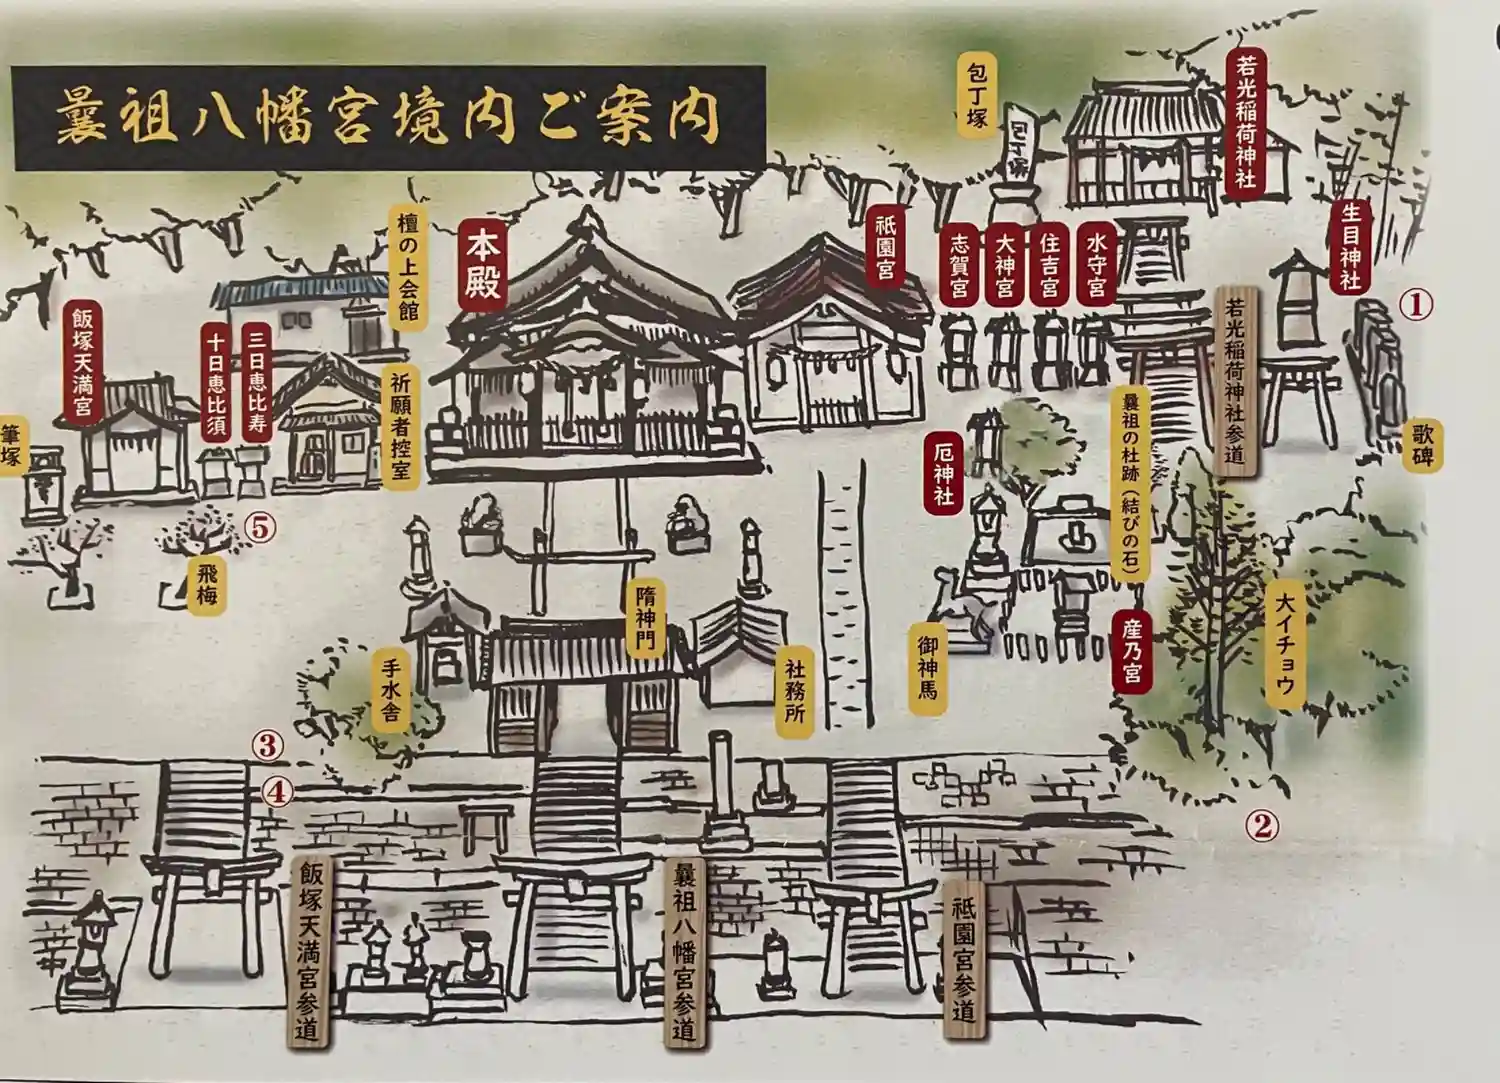 曩祖八幡宮境内ご案内
包丁塚
包丁塚
若光稲荷神社
生目神社
檀の上会館
本殿
祇園宮
志賀宮
大神宮
住吉宮
水守宮
①
若光稲荷神社参道
飯塚天満宮
十日恵比須
三日恵比寿
祈願者控室
筆塚
厄神社
曩祖の杜跡（結びの石）
歌碑
⑤
飛梅
隋神門
手水舎
社務所
御神馬
産乃宮
大イチョウ
③
④
②
飯塚天満宮参道
曩祖八幡宮参道
祇園宮参道